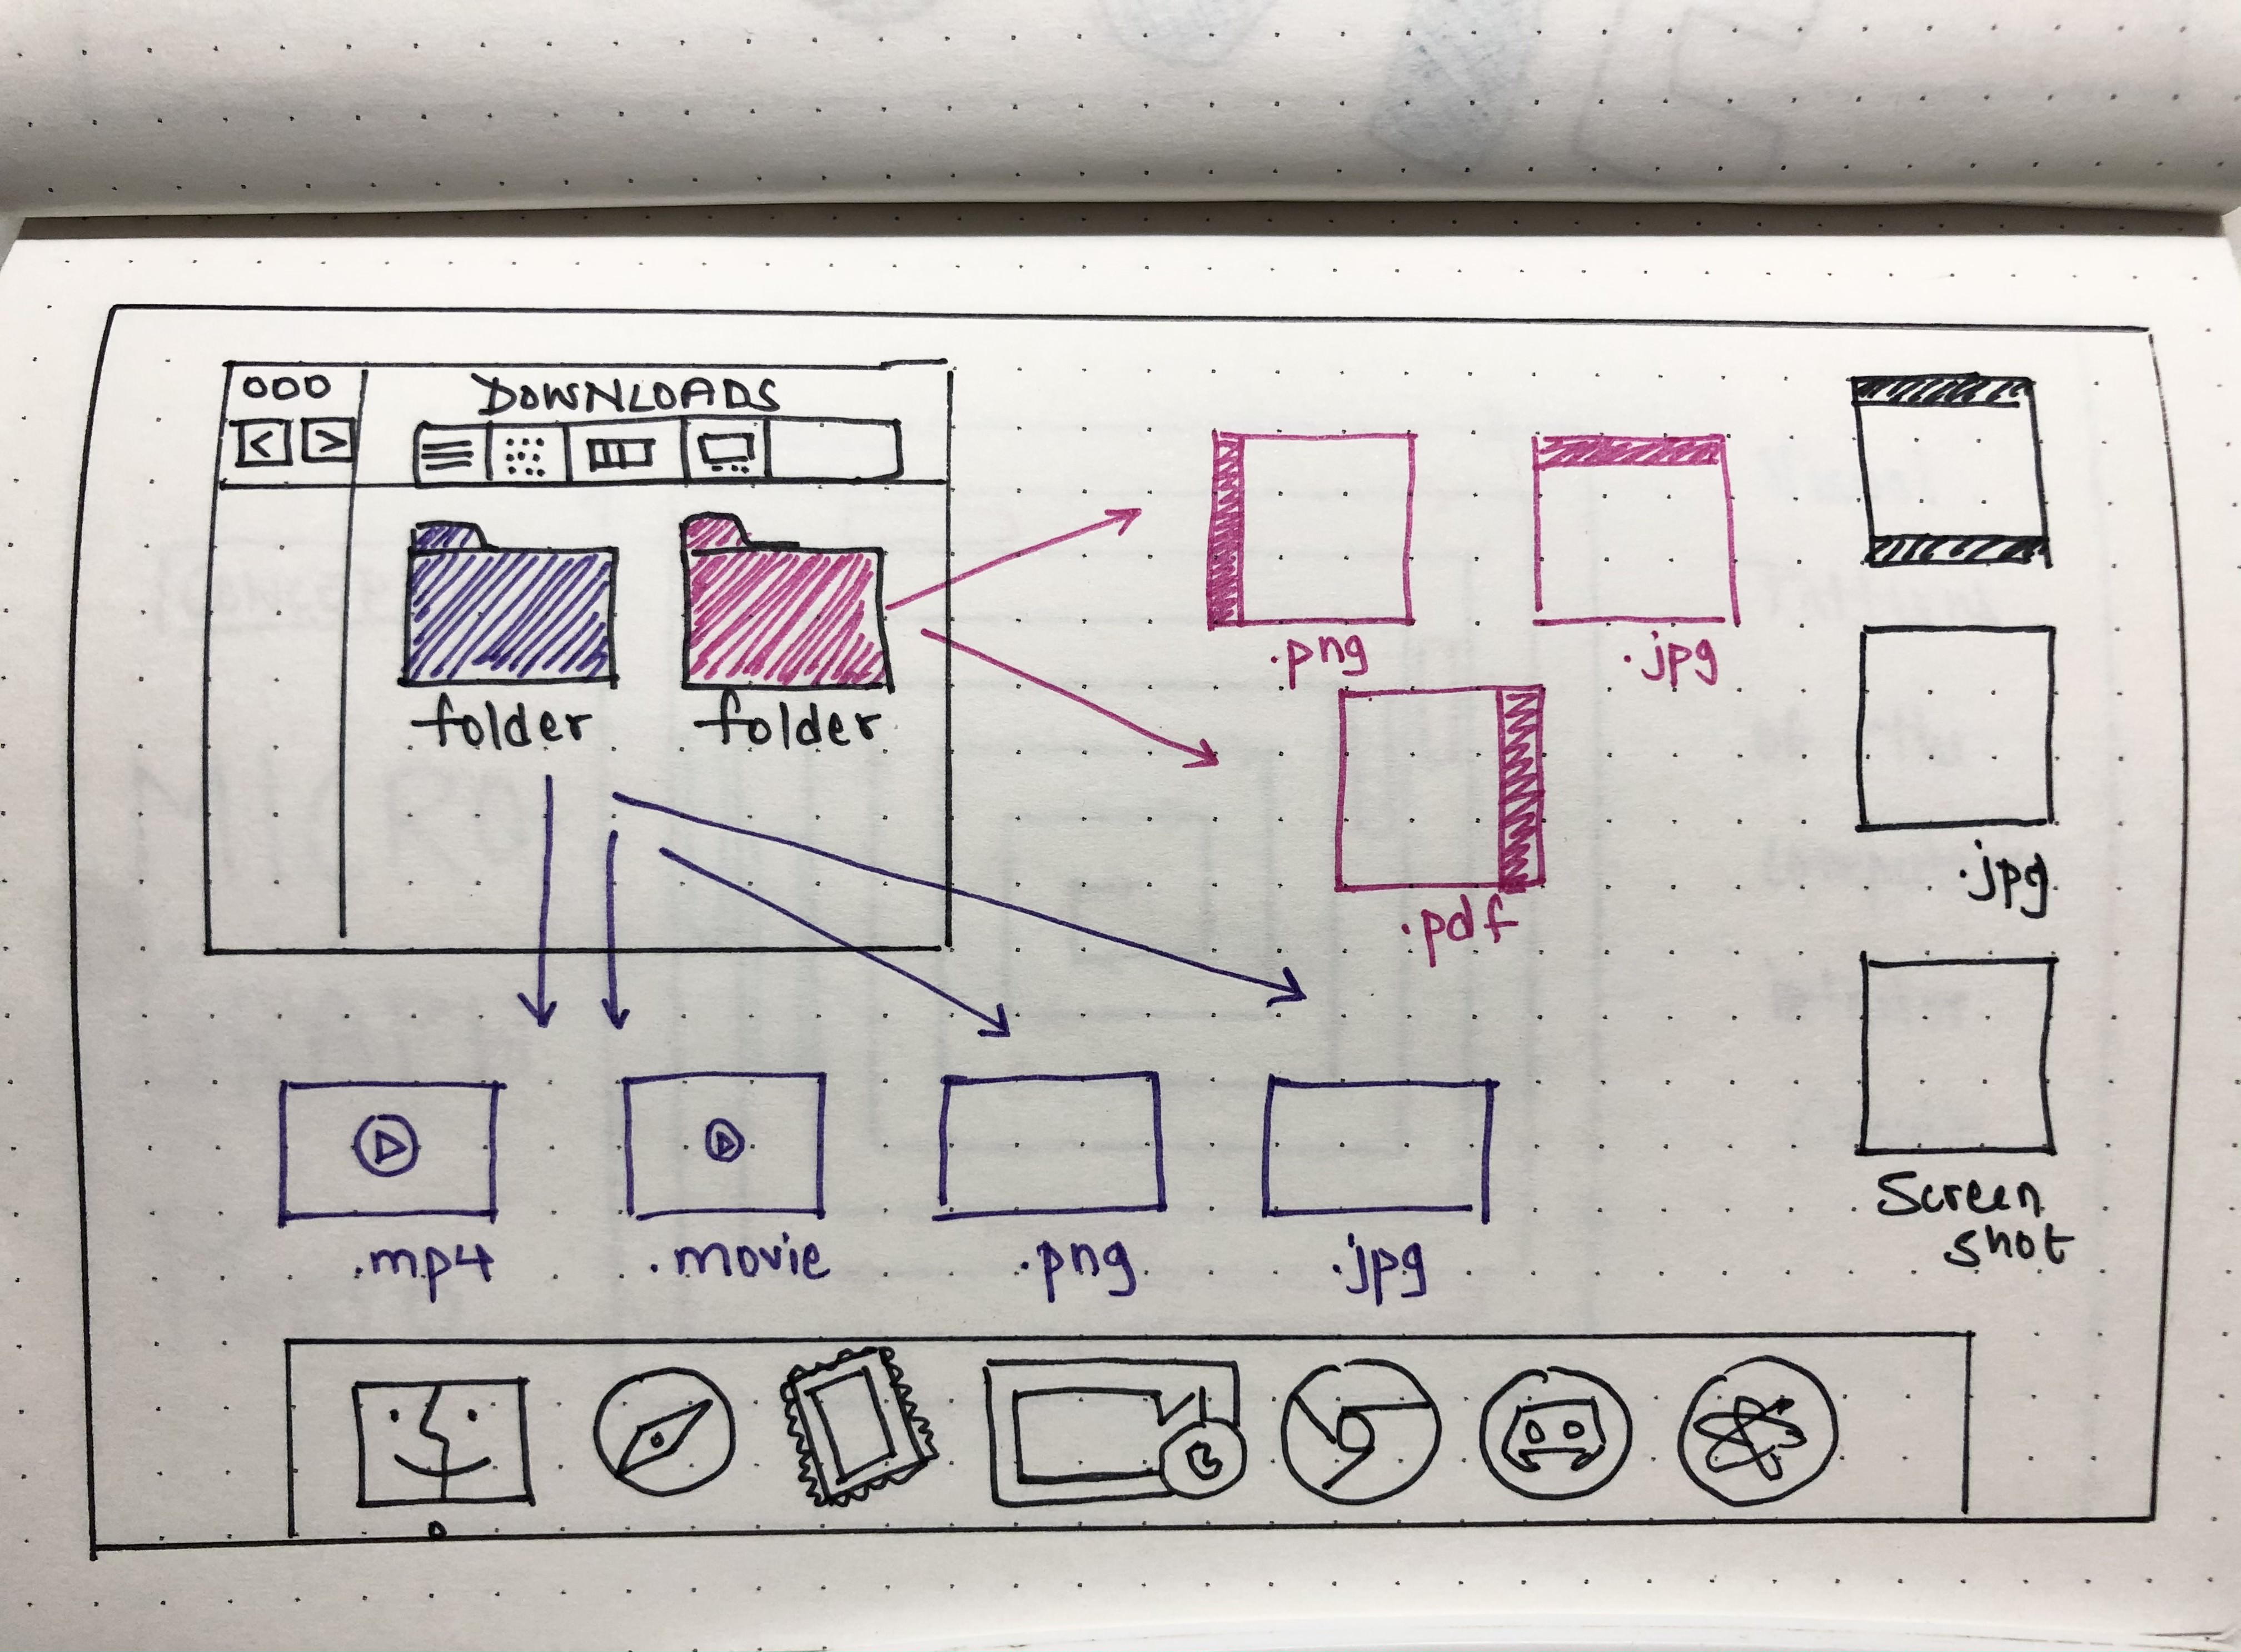 DOWNLOADS
folder
folder
.png
.jpg
.pdf
.jpg
Screen
shot
.mp4
.movie
.png
.jpg